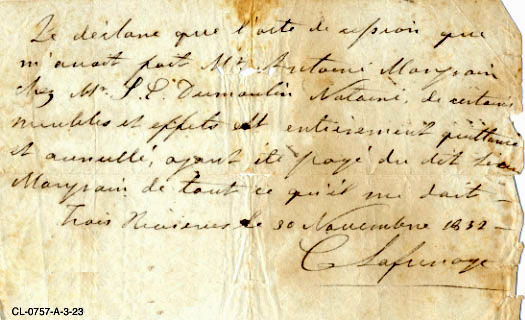 Je déclare que l'acte de cession que
m'avait fait Mr. Antoine Mongrain
chez Mr. L. E. Dumoulin Notaire, de certains
meubles et effets est entièrement quittancé
et annullé, ayant été payé du dit Sieur
Mongrain de tout ce qu'il me doit –
Trois Rivieres le 30 Novembre 1832 –
C Lafrenaye
CL-0757-A-3-23